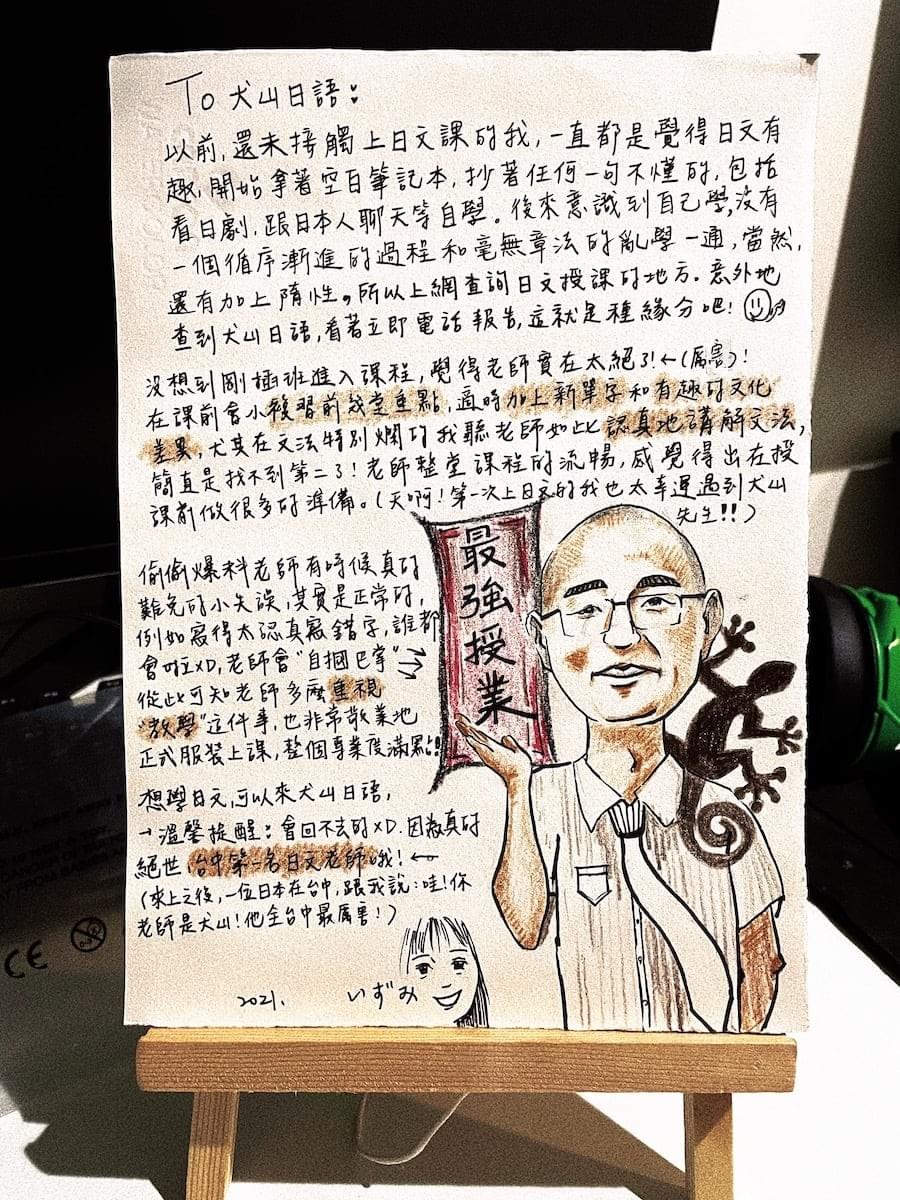 To 犬山日語：
以前，還未接觸上日文課的我，一直都是覺得日文有
趣，開始拿著空白筆記本，抄著任何一句不懂的，包括
看日劇，跟日本人聊天等自學。後來意識到自己學，沒有
一個循序漸進的過程和毫無章法的亂學一通，當然，
還有加上隋性。所以上網查詢日文授課的地方。意外地
查到犬山日語，看著立即電話報告，這就是種緣分吧！
沒想到剛插班進入課程，覺得老師實在太絕了！←（厲害）！
在課前會小複習前幾堂重點，適時加上新單字和有趣的文化
差異，尤其在文法特別爛的我聽老師如此認真地講解文法，
簡直是找不到第二了！老師整堂課程的流暢，感覺得出在授
課前做很多的準備。（天啊！第一次上日文的我也太幸運遇到犬山
先生!!）
偷偷爆料老師有時候真的
難免的小失誤，其實是正常的，
例如寫得太認真寫錯字，誰都
會啦XD，老師會"自摑巴掌"
從此可知老師多麼重視
"教學"這件事，也非常敬業地
正式服裝上課，整個專業度滿點!!
想學日文，可以來犬山日語，
→溫馨提醒：會回不去的XD.因為真的
絕世台中第一名日文老師哦！←
（求上之後，一位日本在台中，跟我說：哇！你
老師是犬山！他全台中最厲害！）
2021.
いずみ
最強授業
CE